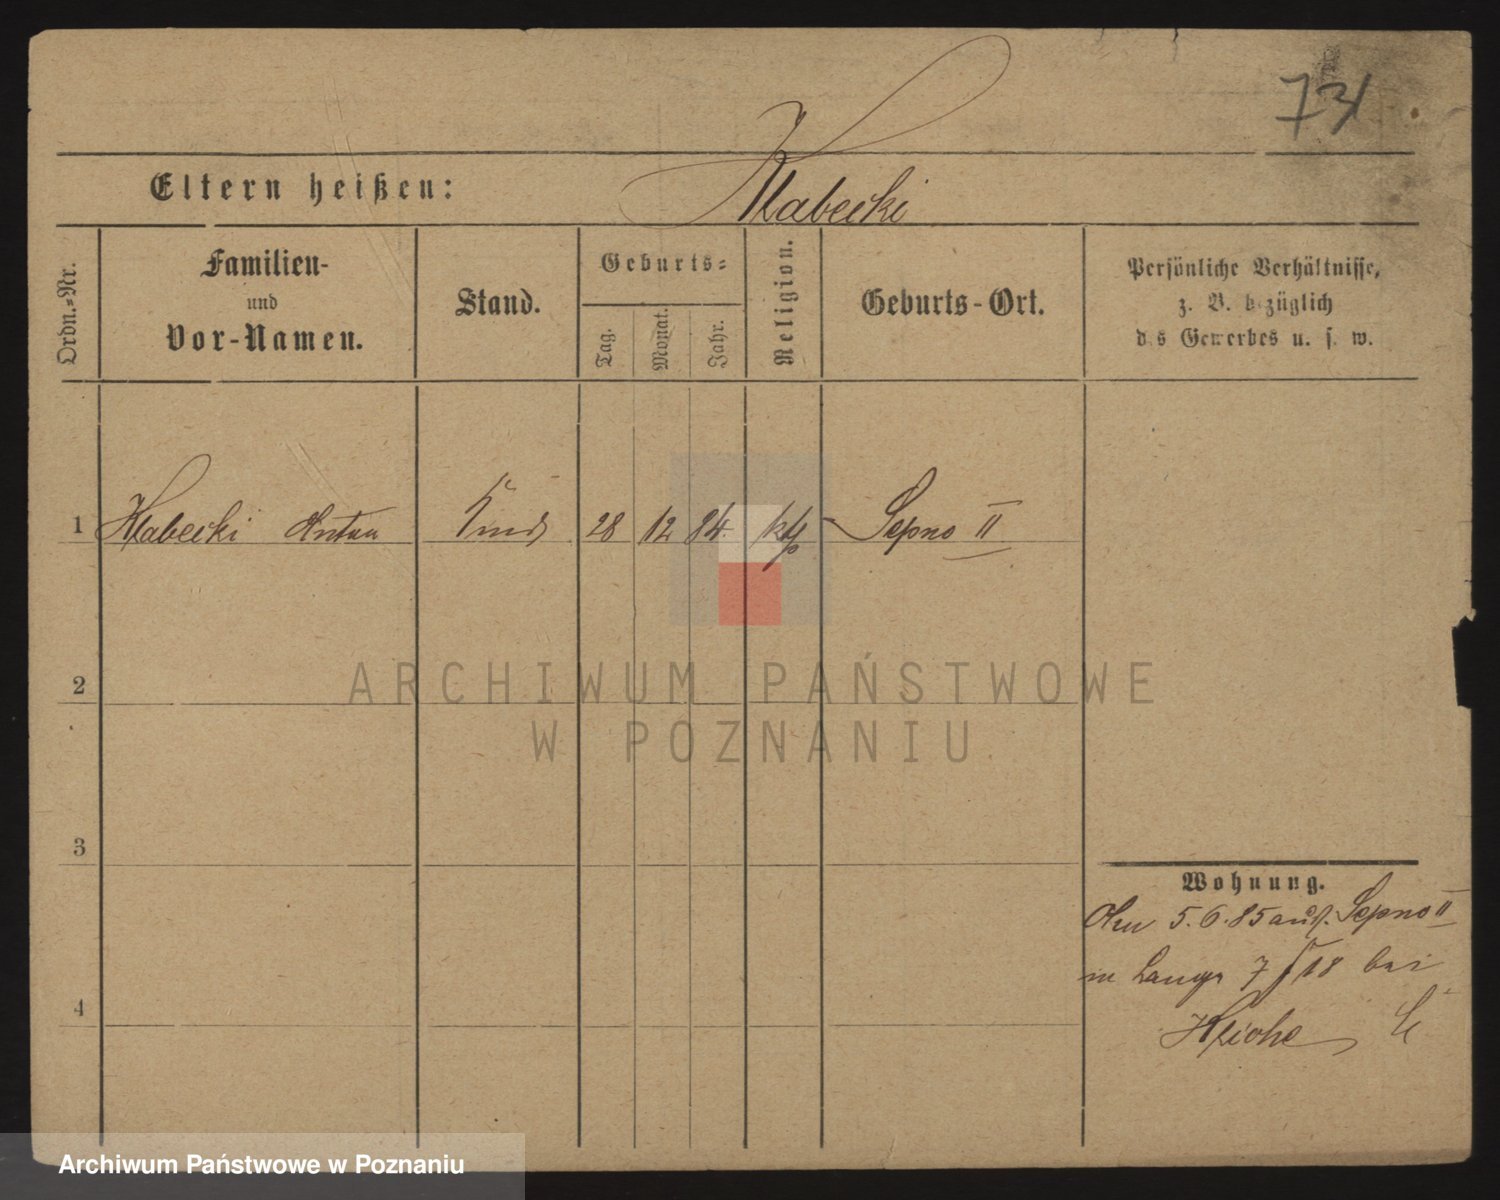 73
Eltern heißen: Klabecki
Ordn.-Nr.
Familien-
und
Vor-Namen.
Stand.
Geburts-
Tag.
Monat.
Jahr.
Religion.
Geburts-Ort.
Persönliche Verhältnisse,
z. B. bezüglich
des Gewerbes u. s. w.
1 Klabecki Anton Kind 28 12 84. kth Sepno II
2
3
4
Wohnung.
Am 5.6.85 aus Sepno II
in Lange 7 18 bei
ARCHIWUM PAŃSTWOWE
W POZNANIU
Archiwum Państwowe w Poznaniu